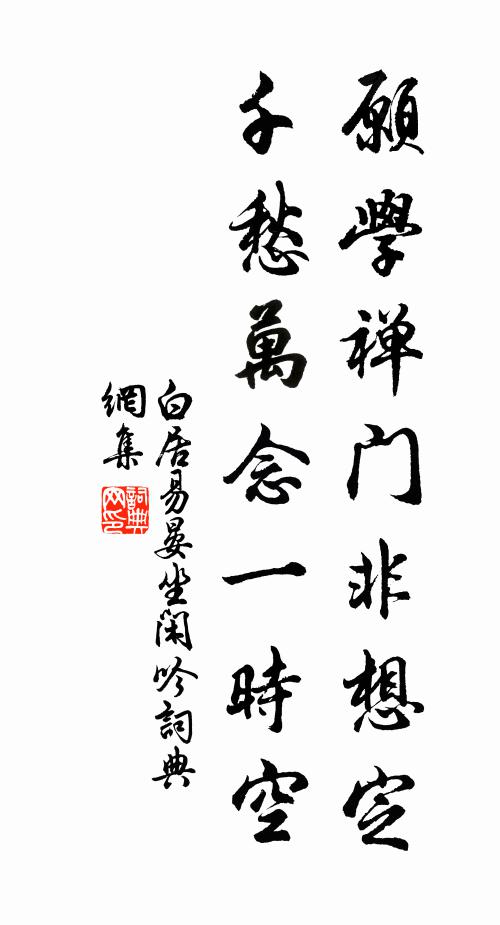 願學禅门非想定
千愁萬念一時空
白居易晏坐闲吟詞典
網集
詞典
网印